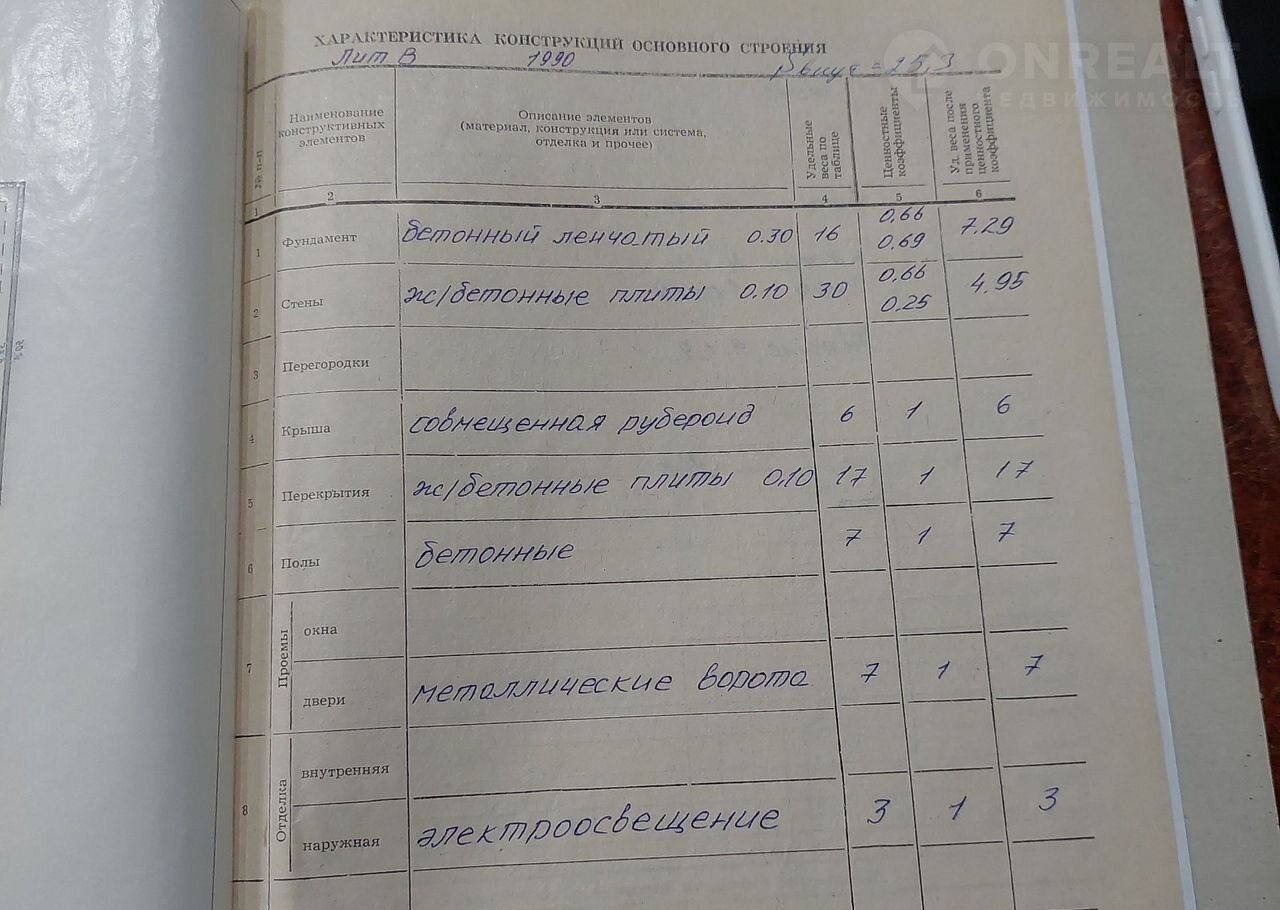 ХАРАКТЕРИСТИКА КОНСТРУКЦИЙ ОСНОВНОГО СТРОЕНИЯ
Лит В 1990 = 25,3
ONREALT
НЕДВИЖИМОСТЬ
№ п-п
Наименование
конструктивных
элементов
Описание элементов
(материал, конструкция или система,
отделка и прочее)
Удельные
веса по
таблице
Ценностные
коэффициенты
Уд. веса после
применения
ценностного
коэффициента
1 2 3 4 5 6
1 Фундамент бетонный ленчатый 0.30 16 0,66 0,69 7,29
2 Стены ж/бетонные плиты 0.10 30 0,66 0,25 4,95
3 Перегородки
4 Крыша совмещенная рубероид 6 1 6
5 Перекрытия ж/бетонные плиты 0.10 17 1 17
6 Полы бетонные 7 1 7
7 Проемы
окна
двери металлические ворота 7 1 7
8 Отделка
внутренняя
наружная электроосвещение 3 1 3